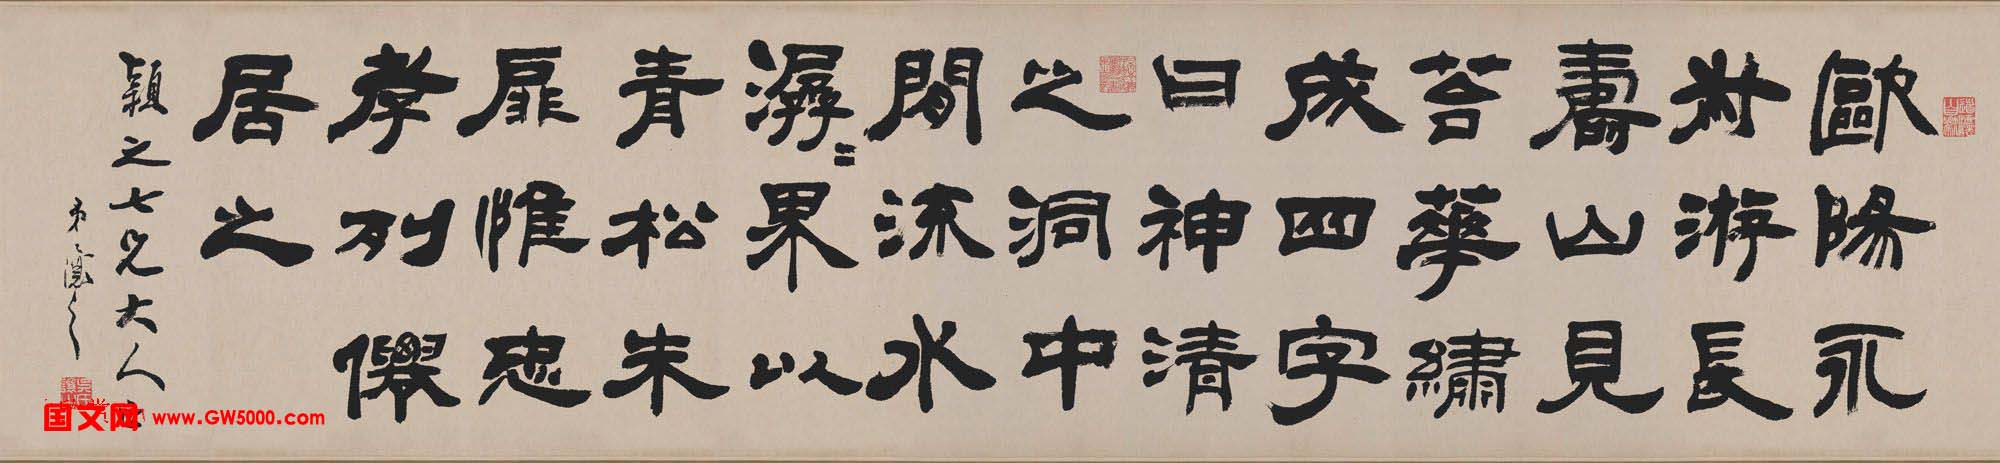 歐陽永
叔游長
壽山見
苔華繡
成四字
曰神清
之洞中
閒流水
潺〻界以
青松朱
扉惟忠
孝列僊
居之
穎之七兄大人
弟
国文网 www.GW5000.com